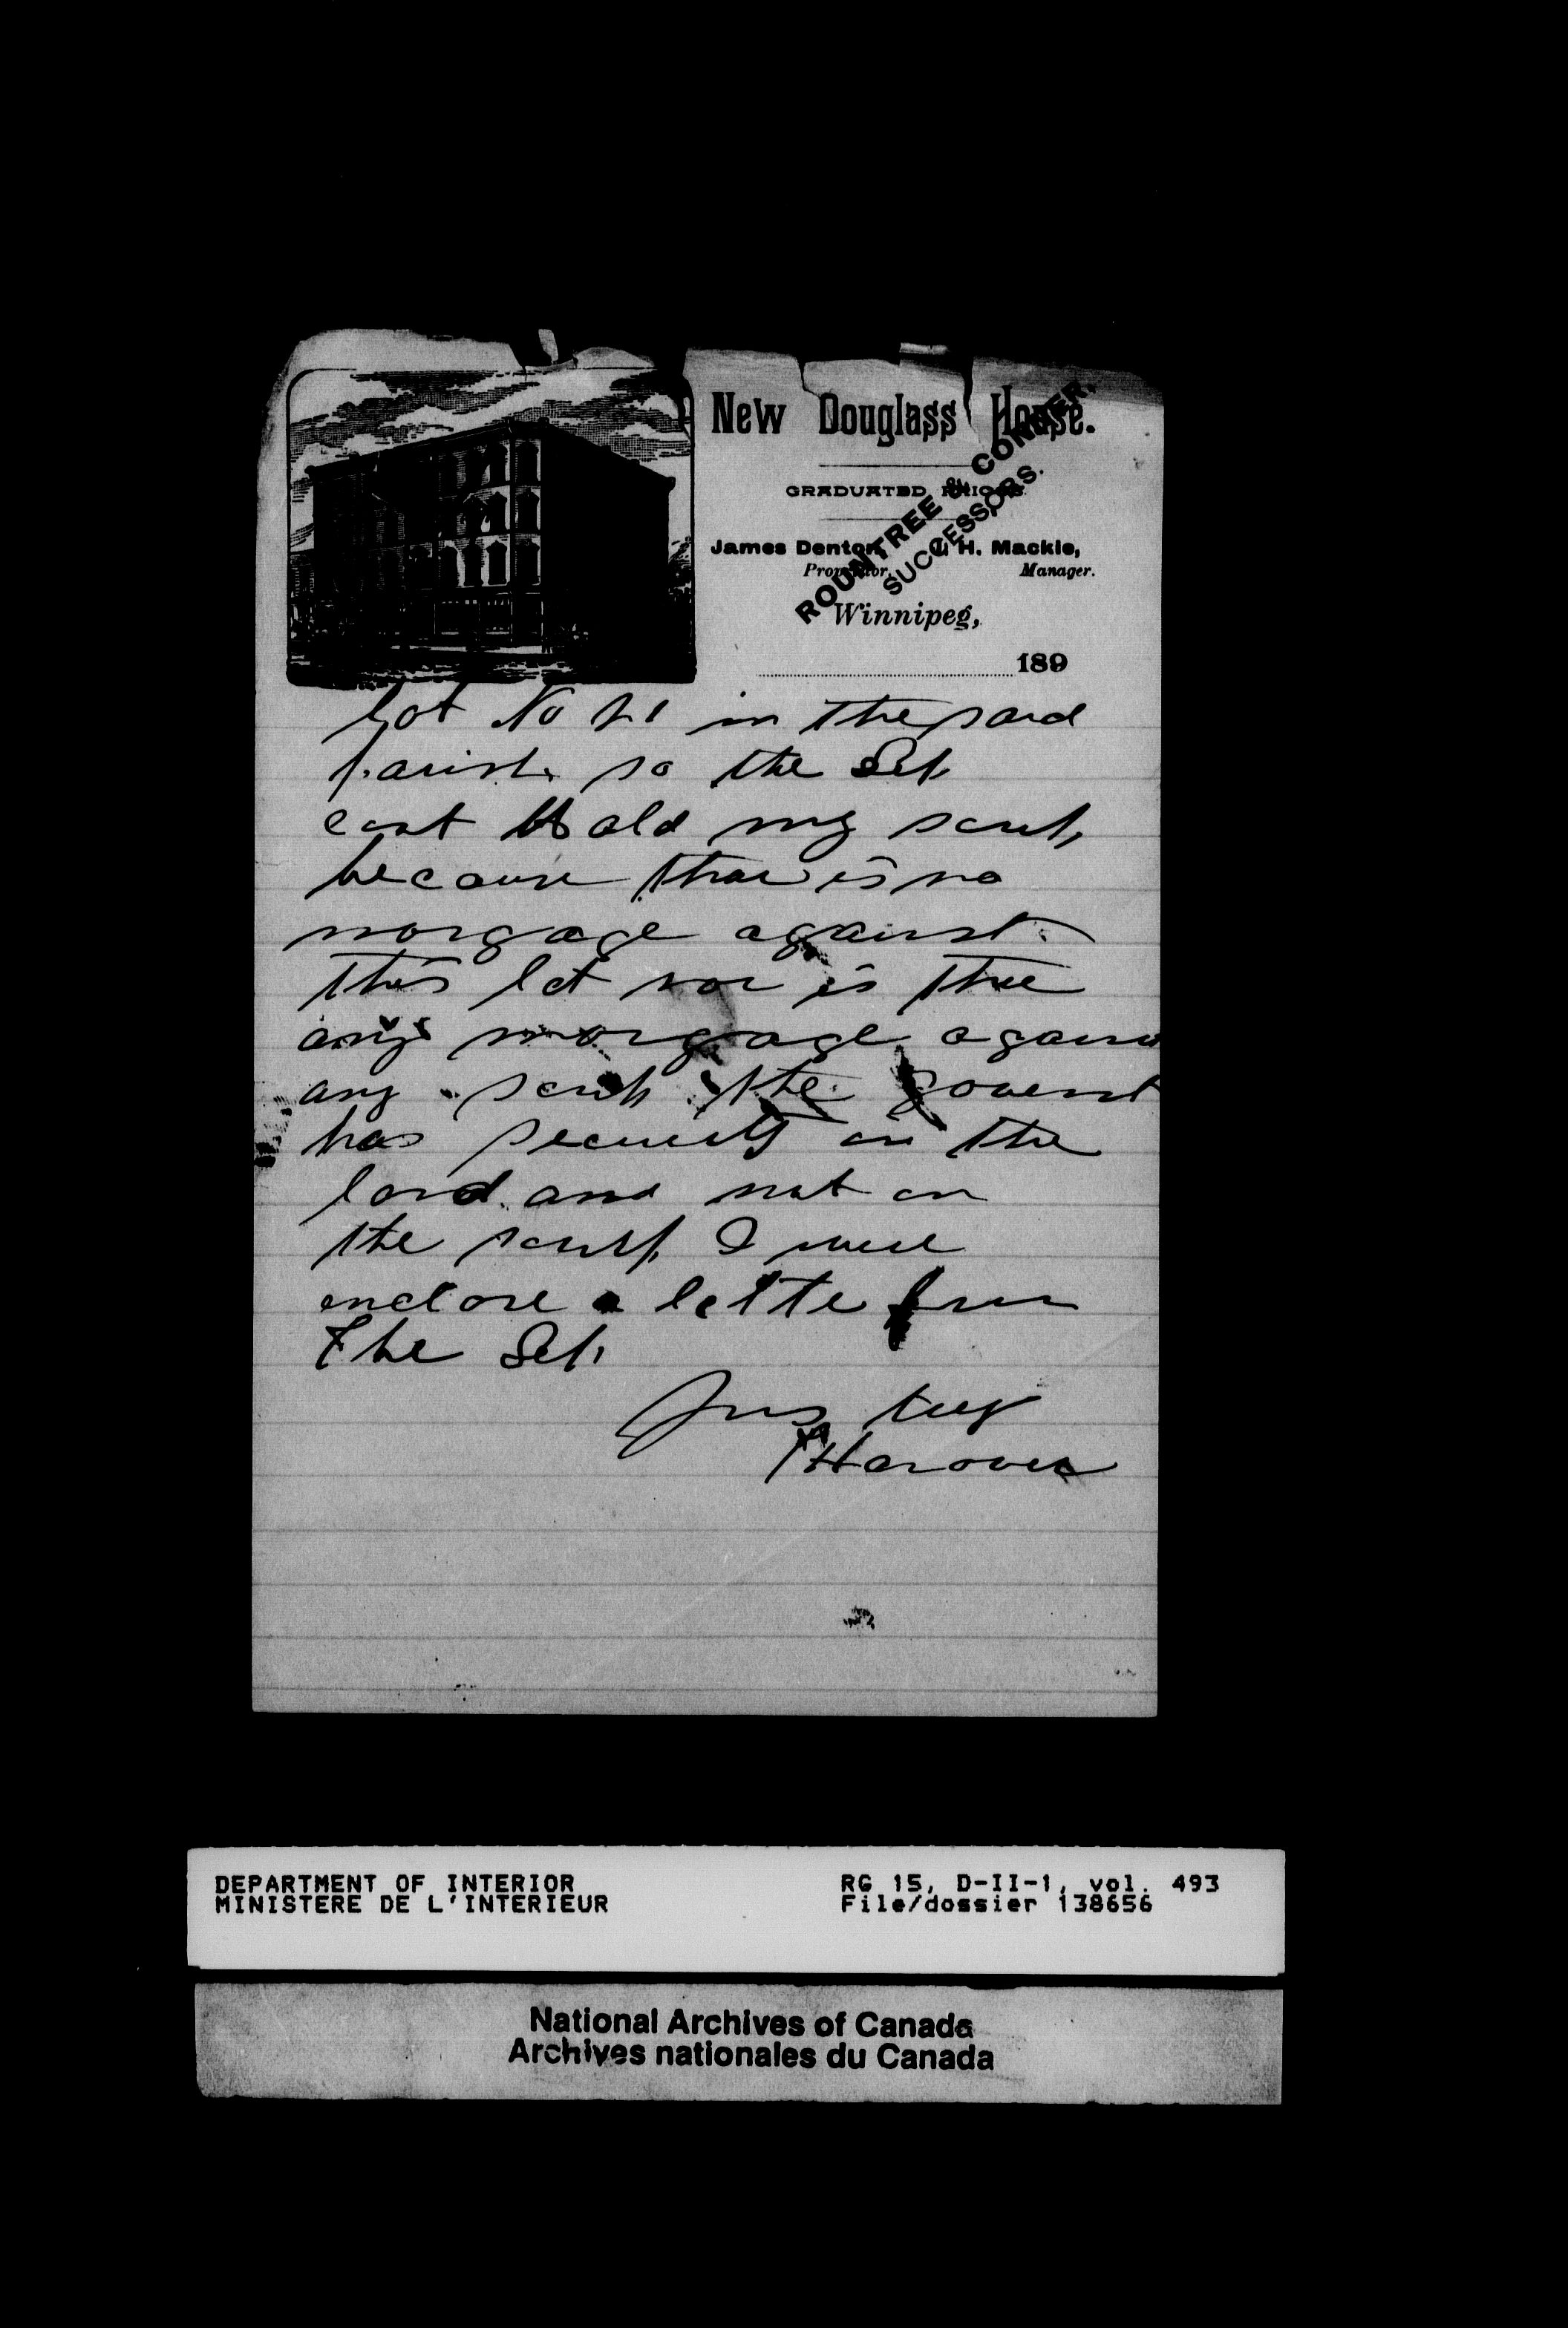 New Douglass House.
GRADUATED PRICES.
ROUNTREE & CONNER.
SUCCESSORS.
James Denton, H. Mackie,
Proprietor. Manager.
Winnipeg,
189
Lot No 21 in the said
parish so the Dept
cant Hold my scrip
because thare is no
morgage against
this lot nor is thee
any morgage against
any scrip the goverst
has security on the
land and not on
the scrip I will
enclose a lette from
the Dept
truly
DEPARTMENT OF INTERIOR RG 15, D-II-1, vol. 493
MINISTERE DE L'INTERIEUR File/dossier 138656
National Archives of Canada
Archives nationales du Canada